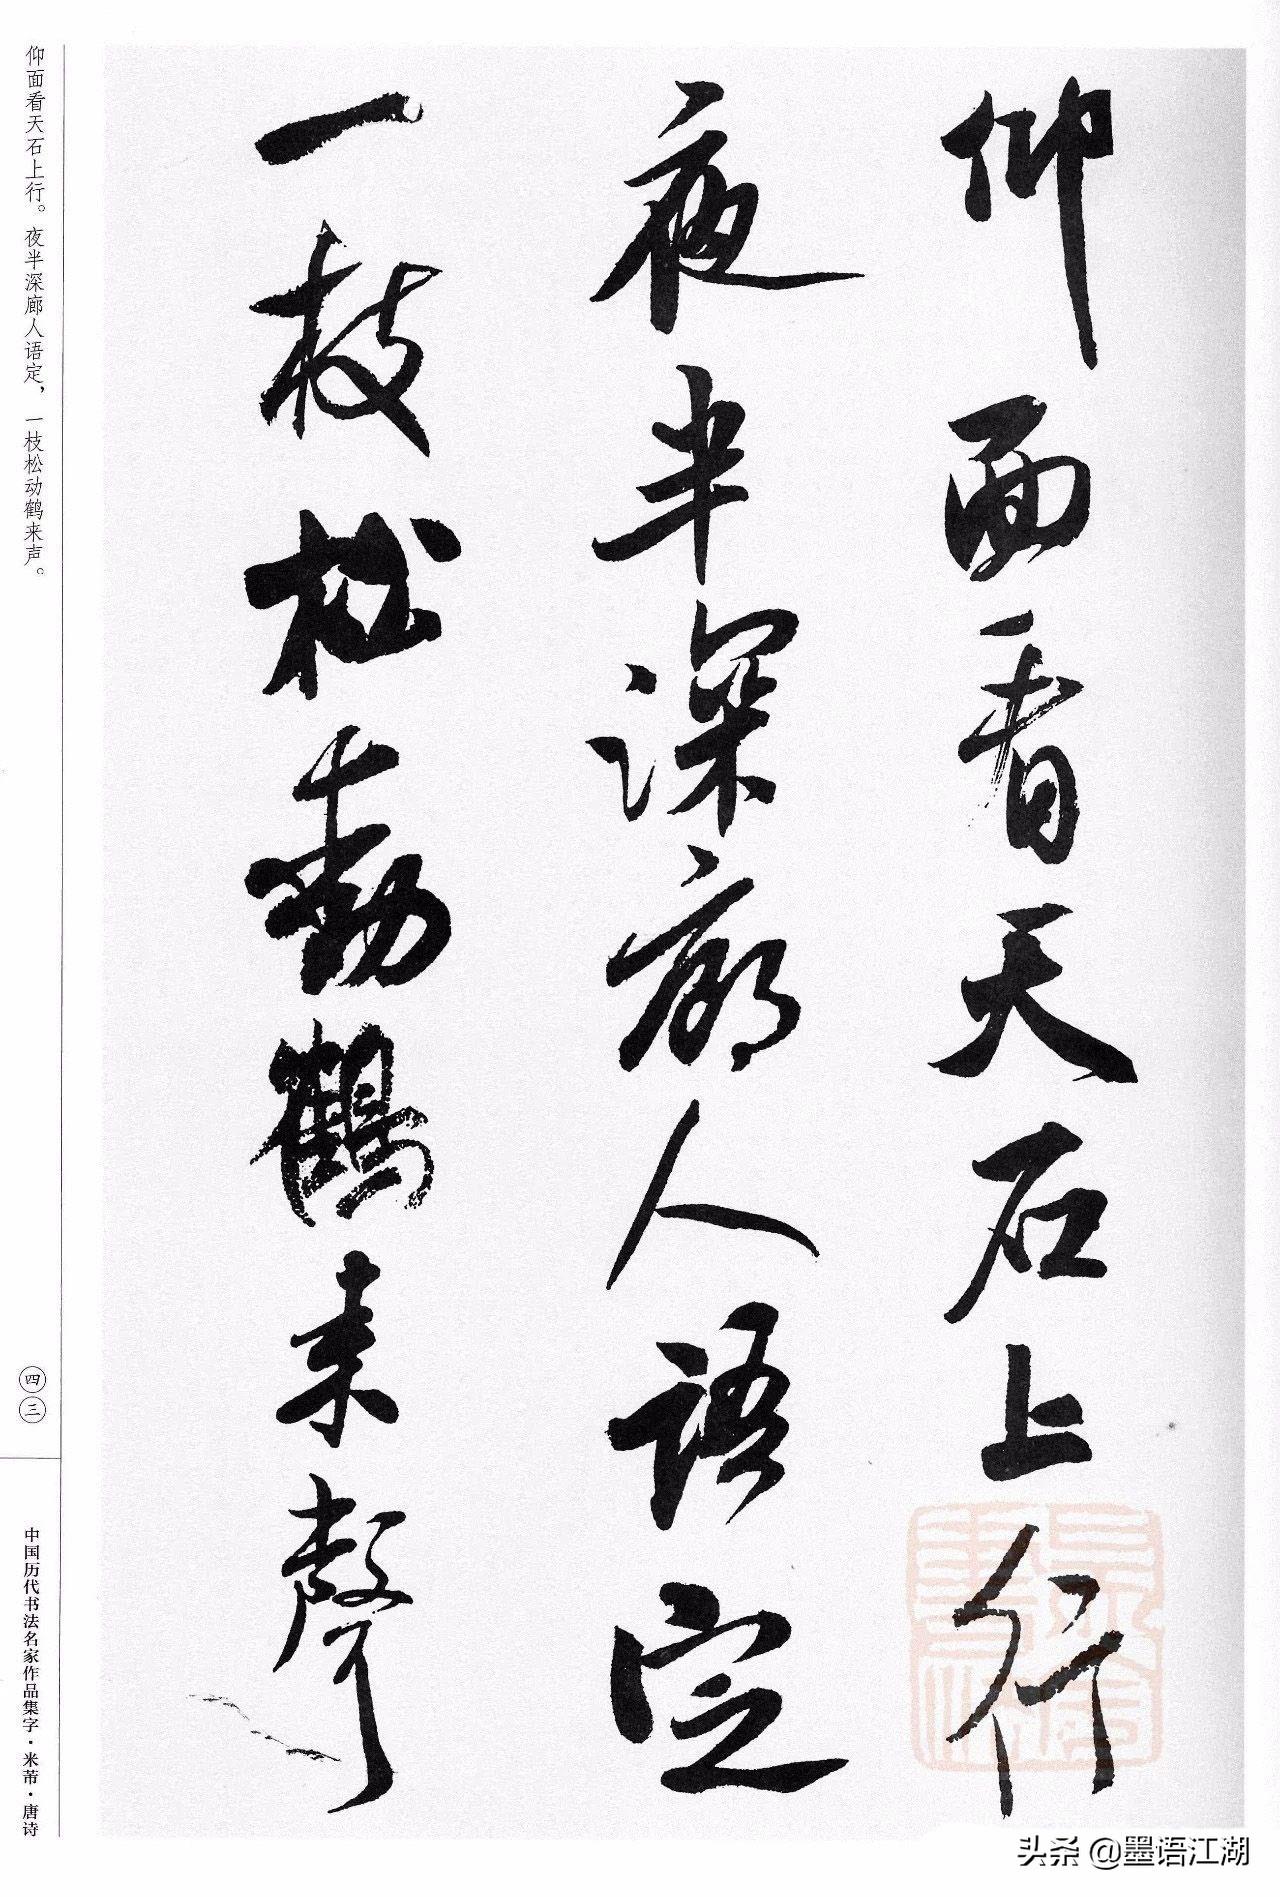 仰面看天石上行
夜半深廊人語定
一枝松動鶴来聲
仰面看天石上行。夜半深廊人语定，一枝松动鹤来声。
四三
中国历代书法名家作品集字·米芾·唐诗
头条 @墨语江湖